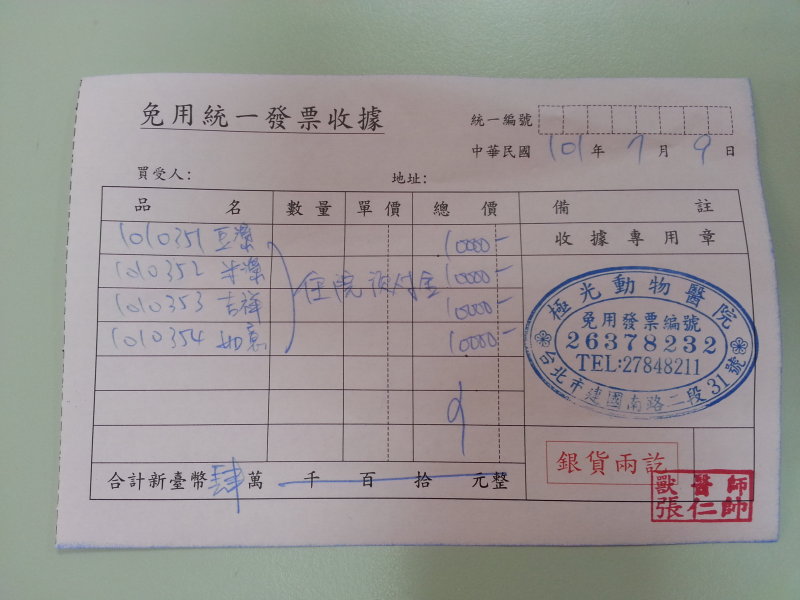 免用統一發票收據
統一編號
中華民國 101 年 7 月 9 日
買受人: 地址:
品名 數量 單價 總價 備註
收據專用章
1010351 豆漿 10000-
1010352 米漿 10000-
1010353 吉祥 10000-
1010354 如意 10000-
住院預付金
極光動物醫院
免用發票編號
26378232
TEL:27848211
台北市建國南路二段31號
合計新臺幣肆萬 千 百 拾 元整
銀貨兩訖
獸醫師
張仁帥